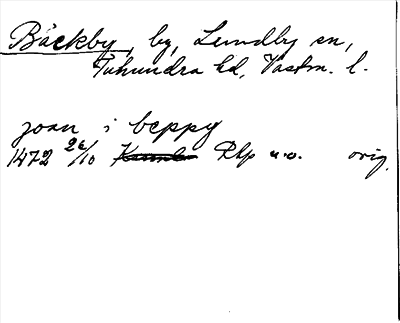 Bäckby, by, Lundby sn,
Tuhundra hd, Västm. l.
joan i beppy
1472 26/10 Rbp u.o. orig.